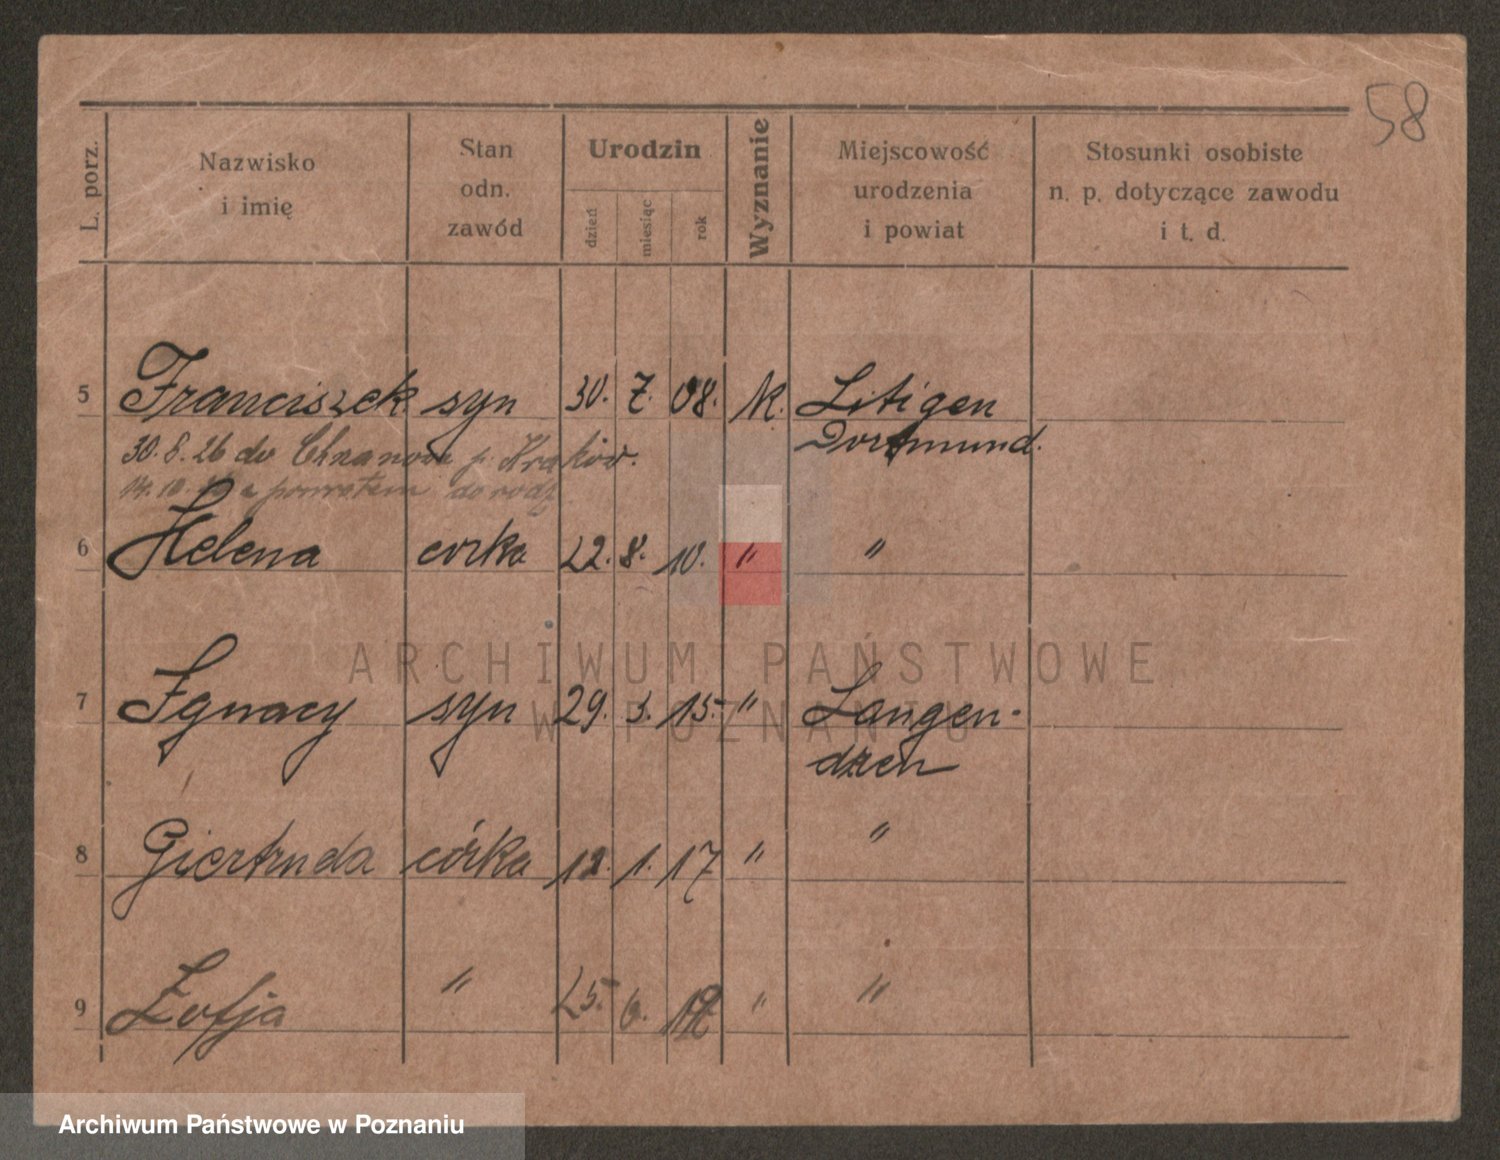 58
L. porz.
Nazwisko i imię
Stan odn. zawód
Urodzin
dzień miesiąc rok
Wyznanie
Miejscowość urodzenia i powiat
Stosunki osobiste n. p. dotyczące zawodu i t. d.
5 Franciszek syn 30. 7. 08. rk. Litigen
Dortmund.
30.8.26 do p. Kraków.
14.10. z powrotem do rodz
6 Helena corka 22. 8. 10. " "
7 Ignacy syn 29. 3. 15. " Langen-
dzen
8 Giertruda córka 12. 1. 17 " "
9 Zofja " 25. 6. " "
ARCHIWUM PAŃSTWOWE
W POZNANIU
Archiwum Państwowe w Poznaniu